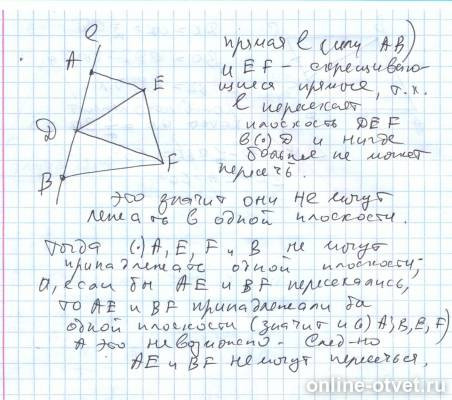 ℓ
A
E
D
F
B
прямая ℓ (или AB)
и EF – скрещиваю-
щиеся прямые, т.к.
ℓ пересекает
плоскость DEF
в (·) D и нигде
больше не может
пересечь.
это значит они не могут
лежать в одной плоскости.
Тогда (·) A, E, F и B не могут
принадлежать одной плоскости;
а, если бы AE и BF пересекались,
то AE и BF принадлежали бы
одной плоскости (значит и (·) A, B, E, F)
А это невозможно. След-но
AE и BF не могут пересечься.
online-otvet.ru